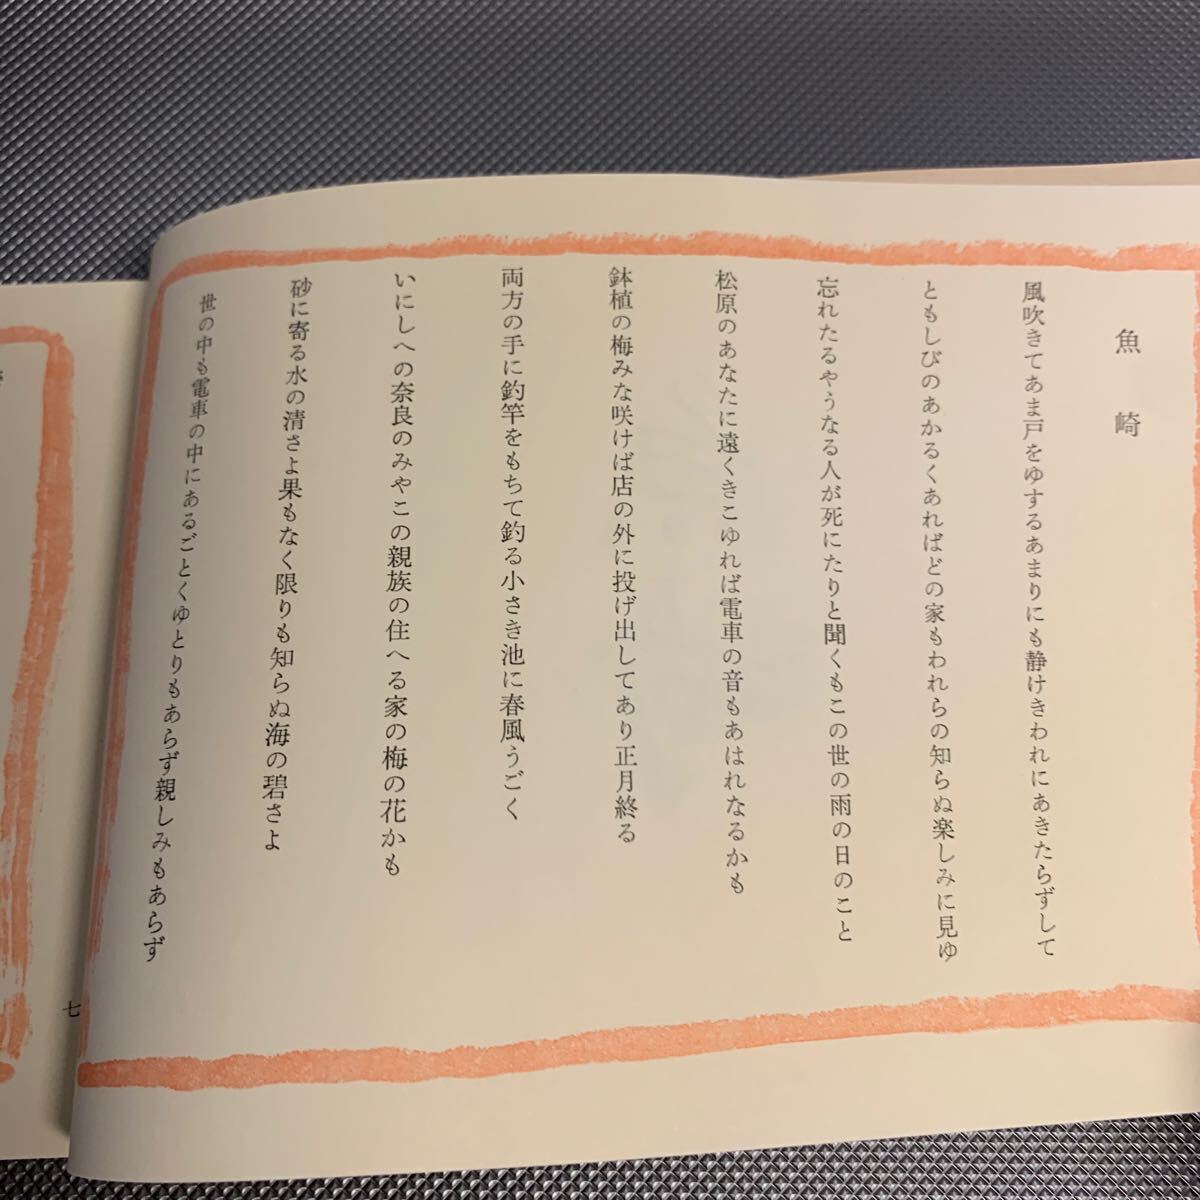 魚崎
風吹きてあま戸をゆするあまりにも静けきわれにあきたらずして
ともしびのあかるくあればどの家もわれらの知らぬ楽しみに見ゆ
忘れたるやうなる人が死にたりと聞くもこの世の雨の日のこと
松原のあなたに遠くきこゆれば電車の音もあはれなるかも
鉢植の梅みな咲けば店の外に投げ出してあり正月終る
両方の手に釣竿をもちて釣る小さき池に春風うごく
いにしへの奈良のみやこの親族の住へる家の梅の花かも
砂に寄る水の清さよ果もなく限りも知らぬ海の碧さよ
世の中も電車の中にあるごとくゆとりもあらず親しみもあらず
七